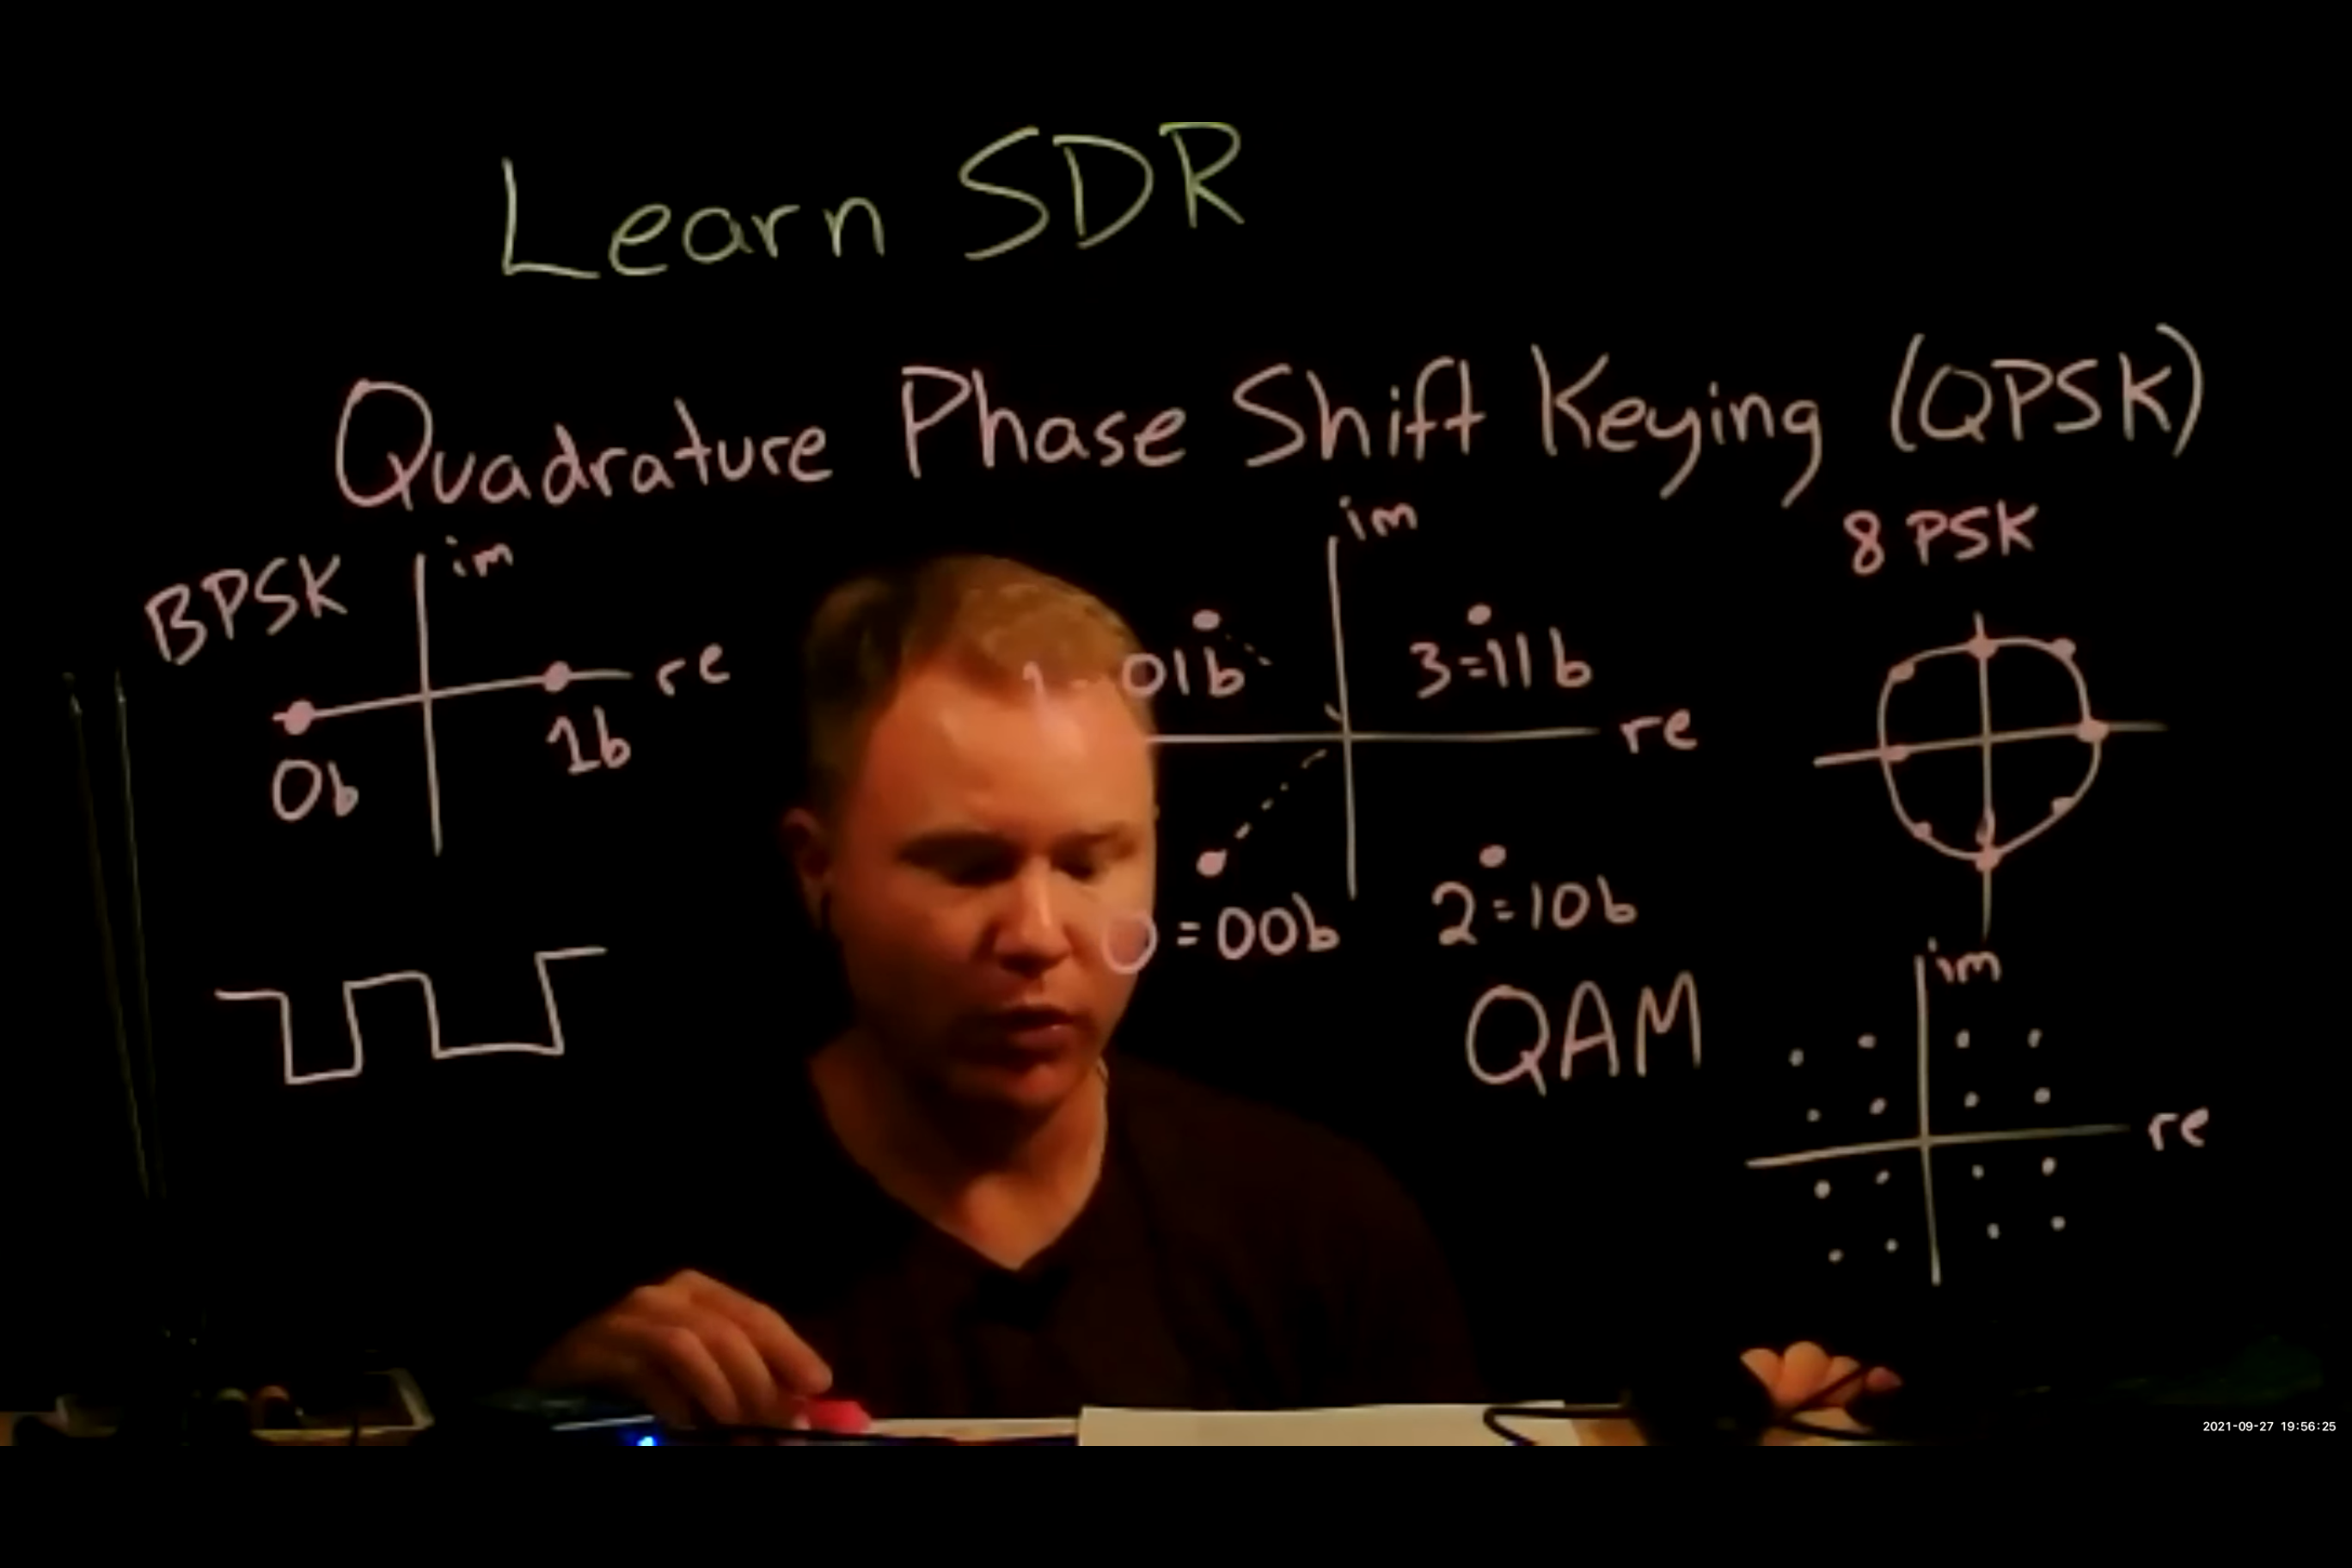 Learn SDR
Quadrature Phase Shift Keying (QPSK)
BPSK
im
re
0b
1b
im
re
1 = 01b
3=11b
0=00b
2=10b
8 PSK
QAM
im
re
2021-09-27 19:56:25